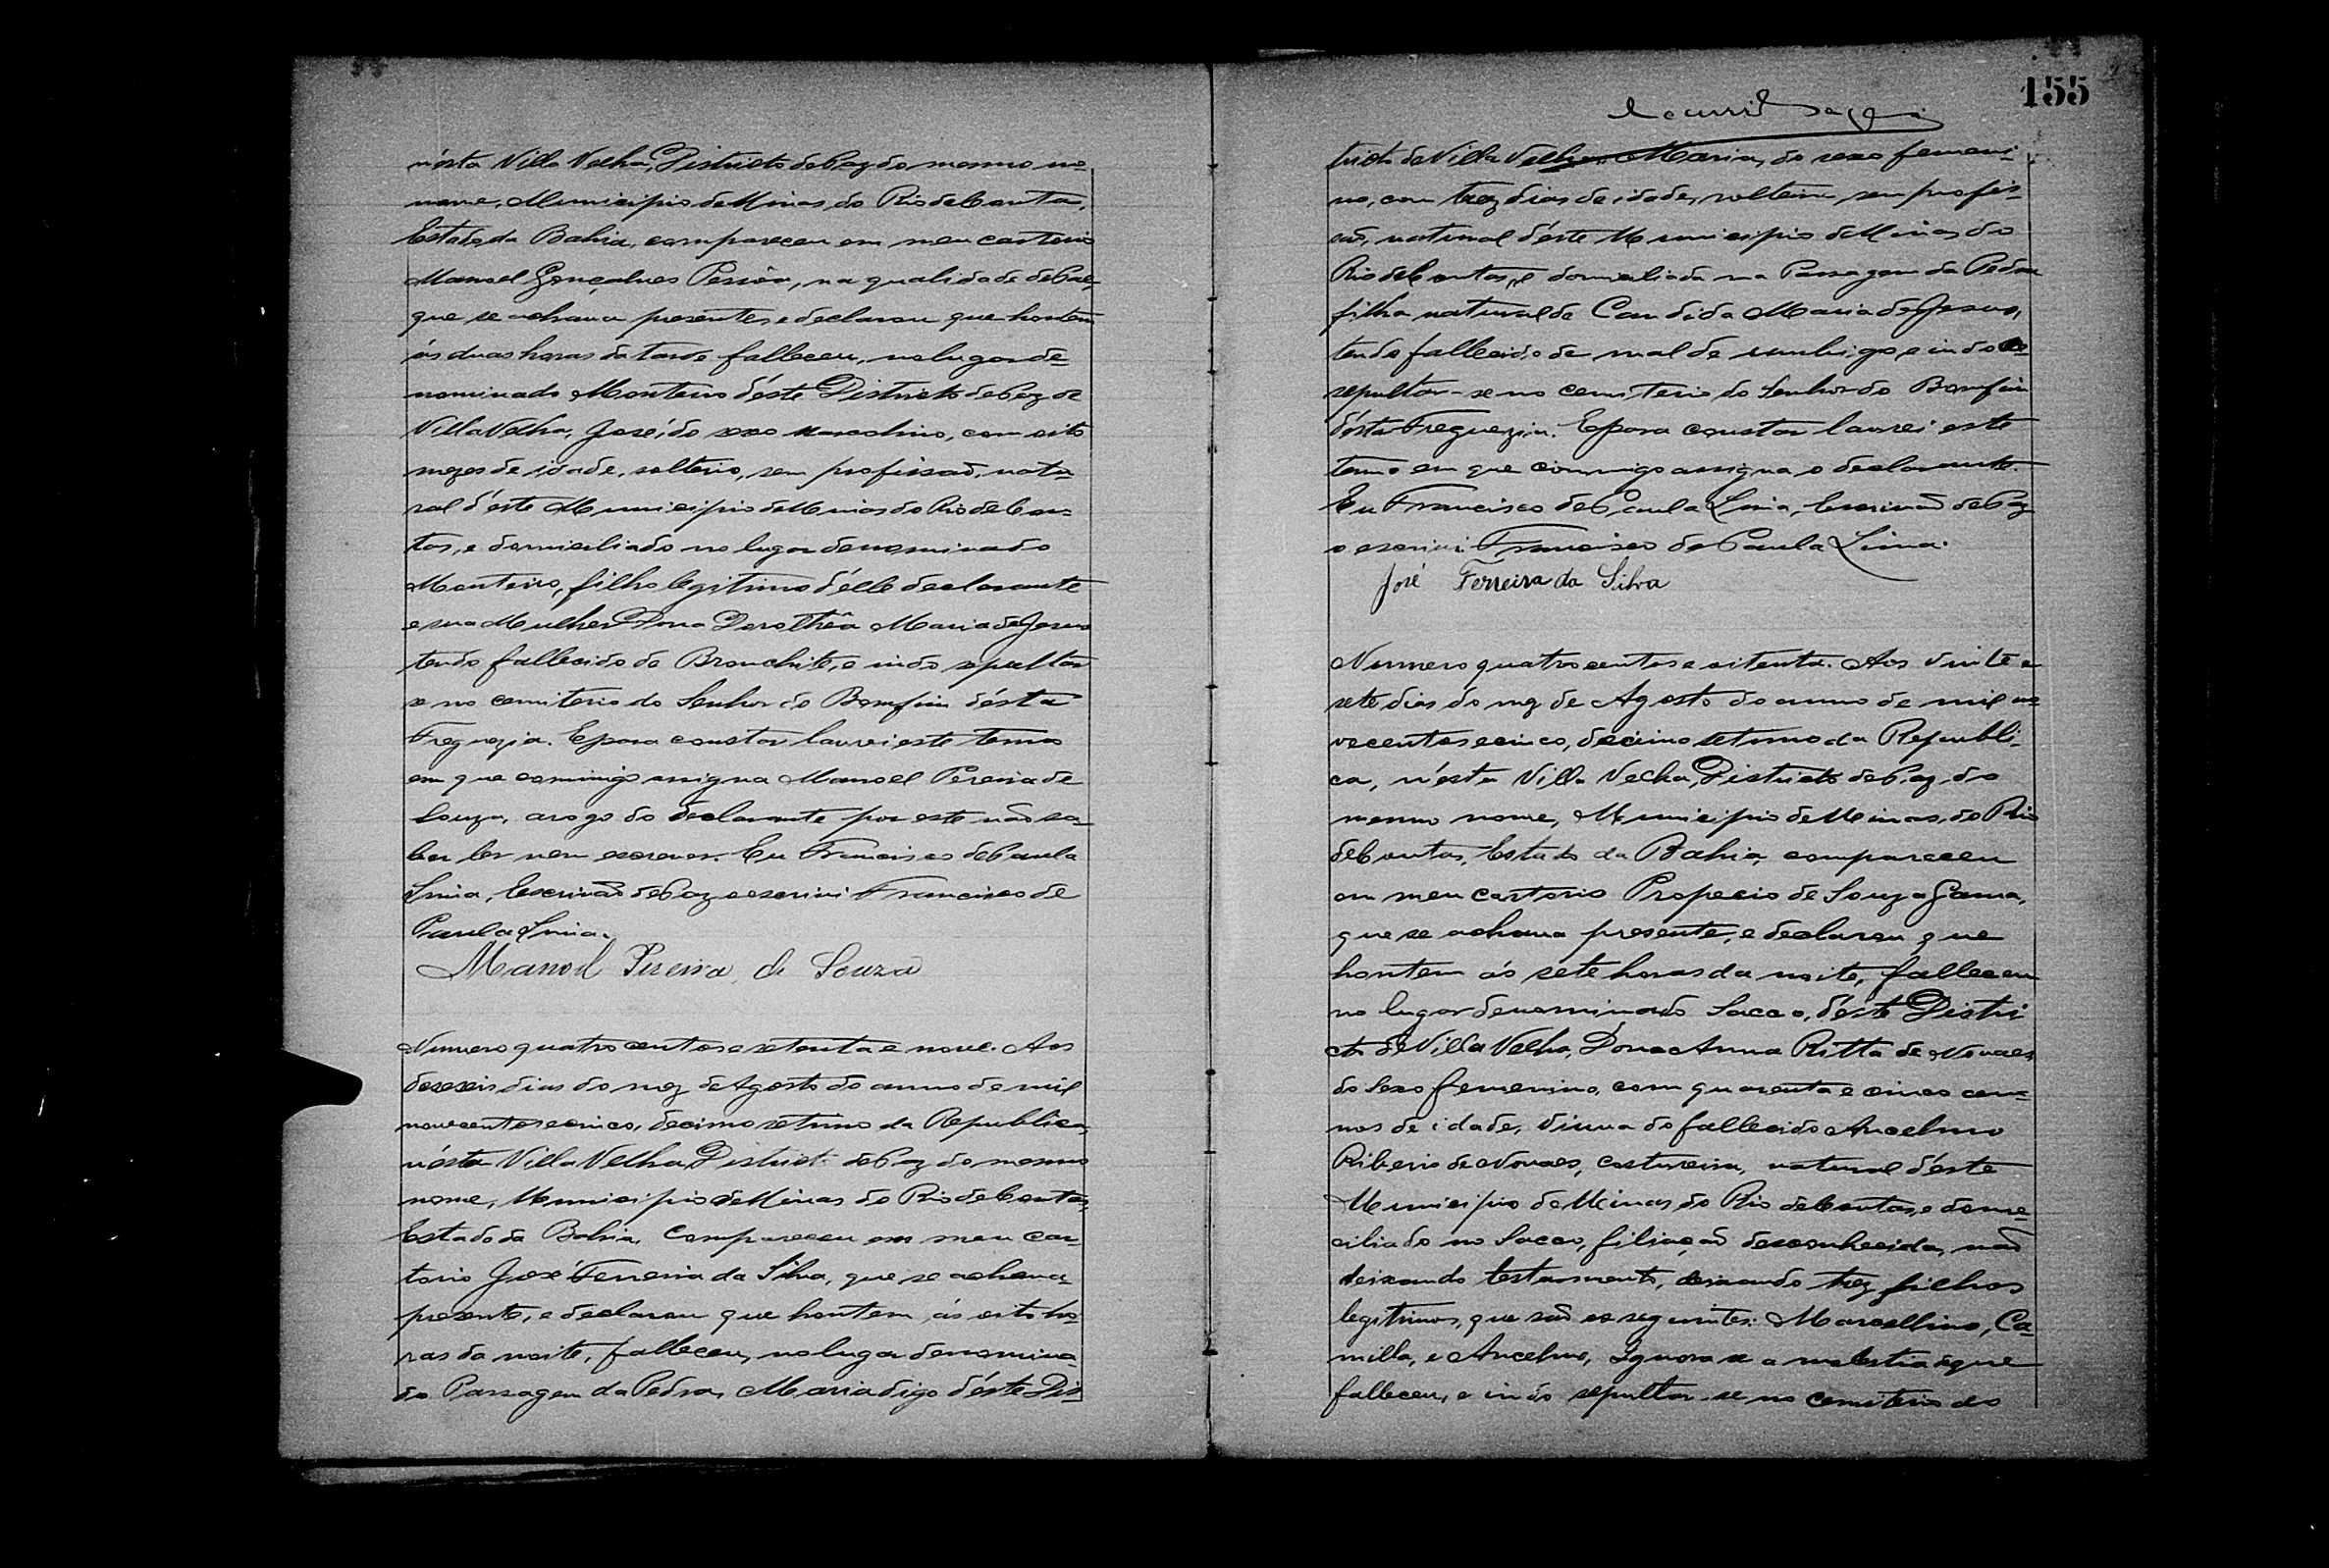 n'ésta Villa Velha, Districto de Paz do mesmo no-
nome, Municipio de Minas do Rio de Contas,
Estado da Bahia, compareceu em meu cartorio
Manoel Gonçalves Pessôa, na qualidade de Pae,
que se achava presente, e declarou que hontem
ás duas horas da tarde falleceu, no lugar de-
nominado Monteiro d'éste Districto de Paz de
Villa Velha, José, do sexo masculino, com oito
mezes de idade, solteiro, sem profissaõ, natu-
ral d'éste Municipio de Minas do Rio de Con-
tas, e domiciliado no lugar denominado
Monteiro, filho legitimo d'élle declarante
e sua Mulher Dona Dorothêa Maria de Jesus
tendo fallecido de Bronchite, e indo sepultar
se no cemiterio do Senhor do Bomfim d'ésta
Freguezia. E para constar lavrei este termo
em que commigo assigna Manoel Pereira de
Souza, arogo do declarante por este não sa-
ber ler nem escrever. Eu Francisco de Paula
Lima, Escrivaõ de Paz o escrivi Francisco de
Paula Lima.
Manoel Pereira de Souza
Numero quatro centos e setenta e nove. Aos
deseseis dias do mez de Agosto do anno de mil
novecentos e cinco, decimo setimo da Republica,
n'ésta Villa Velha, District de Paz do mesmo
nome, Municipio de Minas do Rio de Contas,
Estado da Bahia, Compareceu em meu car-
torio José Ferreira da Silva, que se achava
presente, e declarou que hontem, ás oito ho-
ras da noite, falleceu, no lugar denomina-
do Passagem da Pedra, Maria digo d'éste Dis-
155
tricto de Villa Velha Maria, do sexo femeni-
no, com trez dias de idade, solteira sem profis-
saõ, natural d'éste Municipio de Minas do
Rio de Contas, e domiciliada na Passagem da Pedra
filha natural de Candida Maria de Jesus,
tendo fallecido de mal de umbigo, e indo
sepultar-se no cemiterio do Senhor do Bomfim
d'ésta Freguezia. E para constar lavrei este
termo em que commigo assigna o declarante.
Eu Francisco de Paula Lima, Escrivaõ de Paz
o escrivi Francisco de Paula Lima.
José Ferreira da Silva
Numero quatro centos e oitenta. Aos vinte e
sete dias do mez de Agosto do anno de mil no-
vecentos e cinco, decimo setimo da Republi-
ca, n'ésta Villa Velha, Districto de Paz do
mesmo nome, Municipio de Minas do Rio
de Contas, Estado da Bahia, compareceu
em meu cartorio Propecio de Souza Gama,
que se achava presente, e declarou que
hontem ás sete horas da noite, falleceu
no lugar denominado Sacco, d'éste Distri
cto de Villa Velha, Dona Anna Ritta de Novaes
do sexo femenino, com quarenta e cinco an-
nos de idade, viuva do fallecido Ancelmo
Ribeiro de Novaes, costureira, natural d'éste
Municipio de Minas do Rio de Contas, e dome-
ciliado no Sacco, filiaçaõ desconhecida, naõ
deixando testamento, deixando trez filhos
legitimos, que saõ os seguintes: Marcellino, Ca-
milla, e Ancelmo, Ignora se a molestia de que
falleceu, e indo sepultar-se no cemiterio do